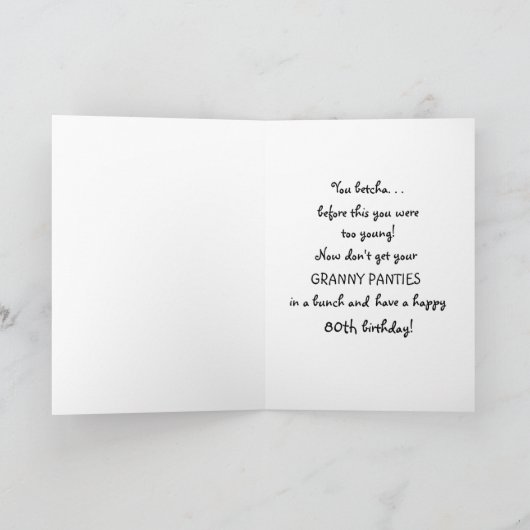 You betcha. . .
before this you were
too young!
Now don't get your
GRANNY PANTIES
in a bunch and have a happy
80th birthday!